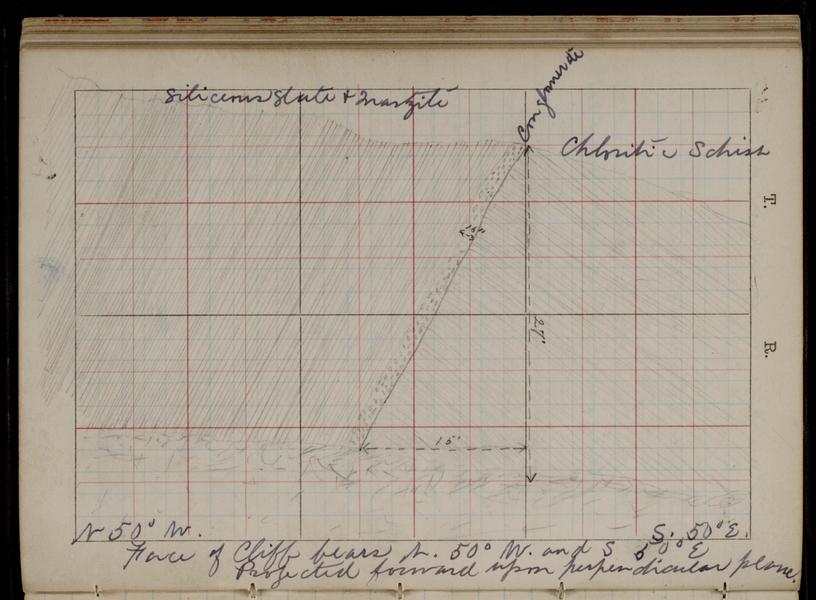 Conglomerate
Siliceous Slate + Quartzite
Chloritic Schist
T.
27'
R.
15'
N 50° W.
S. 50° E.
Face of Cliff bears N. 50° W. and S 50° E
Projected forward upon perpendicular plane.